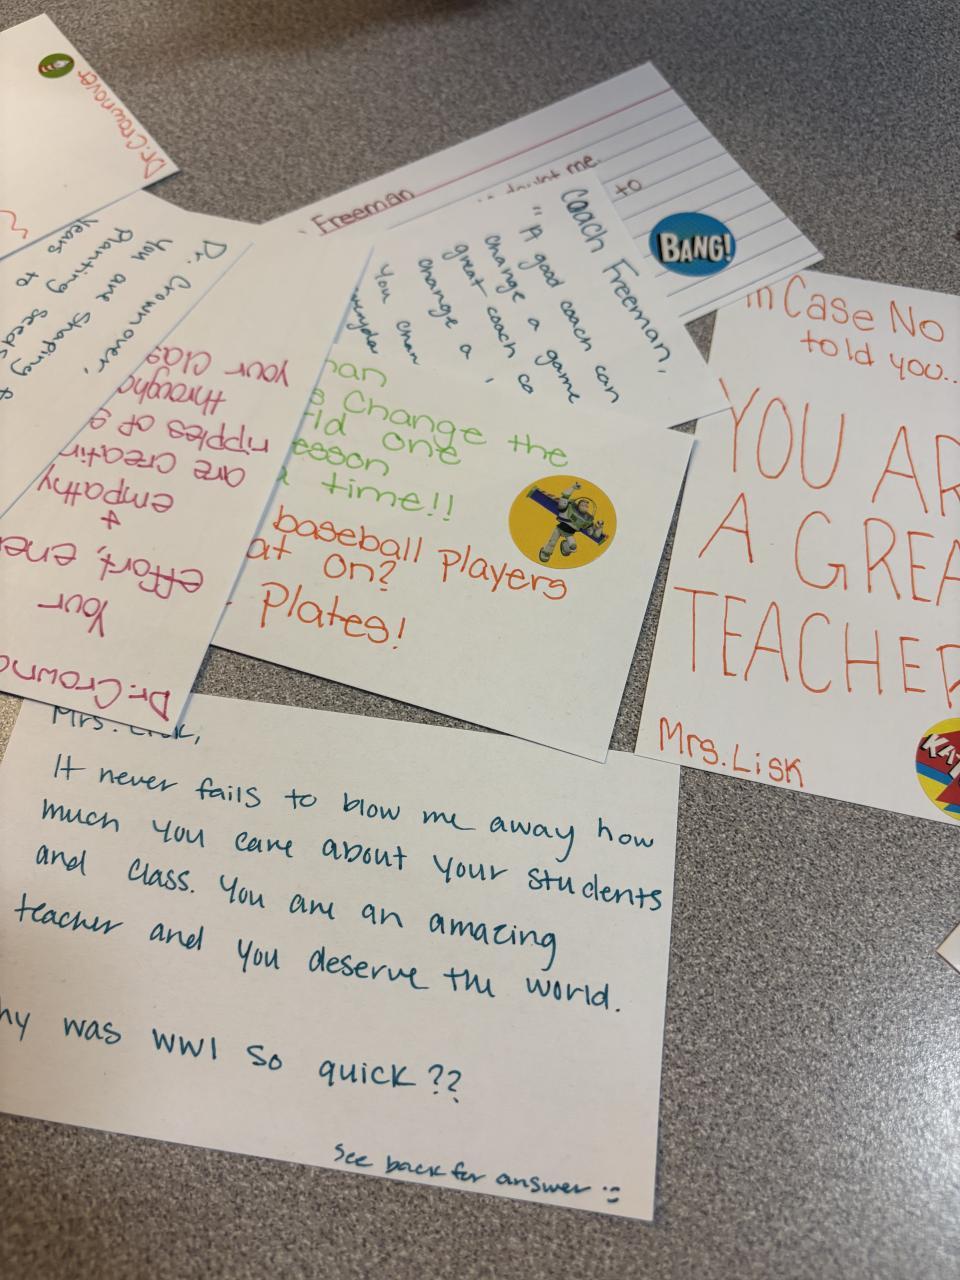 Dr. Crownover
Freeman
me.
to
BANG!
Coach Freeman,
"A good coach can
change a game
great coach
change a
You
Dr. Crownover,
You are shaping &
Planting seeds
years to
In Case No
told you..
YOU AR
A GREA
TEACHER
Mrs. Lisk
KAT
Change the
one
a time!!
baseball players
at on?
Plates!
Dr. Crowno
Your
effort, ene
&
empathy
are creatin
ripples of g
througho
your clas
Mrs. Lisk,
It never fails to blow me away how
much you care about your students
and class. You are an amazing
teacher and you deserve the world.
hy was WWI so quick??
See back for answer :)